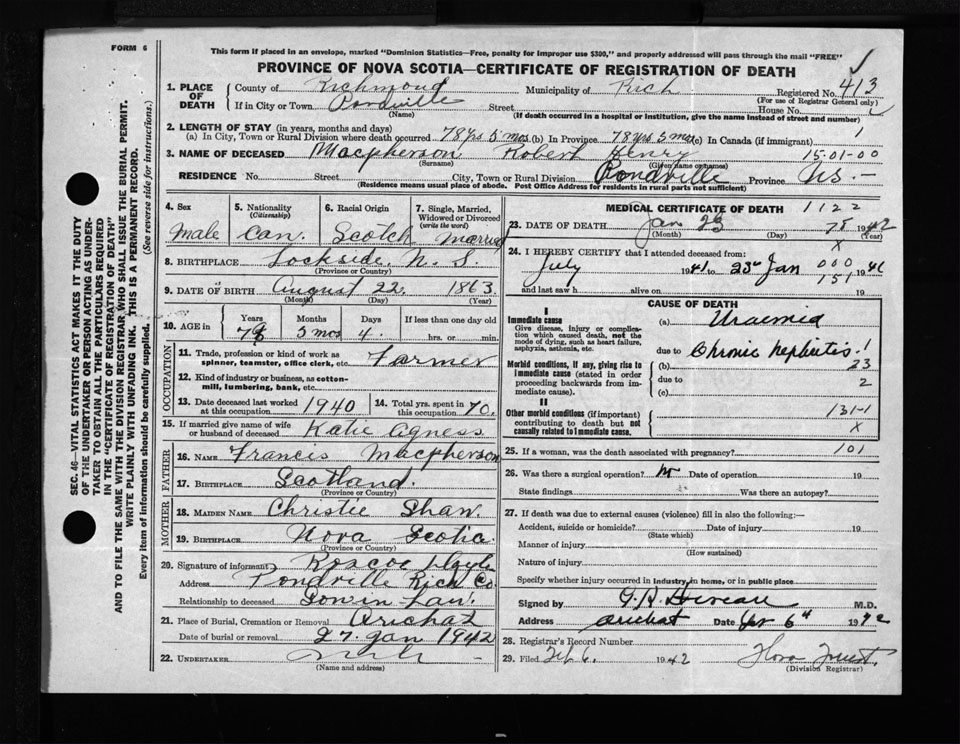 FORM 6
This form if placed in an envelope, marked "Dominion Statistics—Free, penalty for improper use $300," and properly addressed will pass through the mail "FREE"
PROVINCE OF NOVA SCOTIA—CERTIFICATE OF REGISTRATION OF DEATH
SEC. 46—VITAL STATISTICS ACT MAKES IT THE DUTY
OF THE UNDERTAKER OR PERSON ACTING AS UNDER-
TAKER TO OBTAIN ALL THE PARTICULARS REQUIRED
IN THE "CERTIFICATE OF REGISTRATION OF DEATH"
AND TO FILE THE SAME WITH THE DIVISION REGISTRAR WHO SHALL ISSUE THE BURIAL PERMIT.
WRITE PLAINLY WITH UNFADING INK. THIS IS A PERMANENT RECORD.
Every item of information should be carefully supplied. (See reverse side for instructions.)
1. PLACE OF DEATH County of Richmond Municipality of Rich Registered No. 413
(For use of Registrar General only)
If in City or Town Pondville Street House No.
(Name) (If death occurred in a hospital or institution, give the name instead of street and number)
2. LENGTH OF STAY (in years, months and days)
(a) In City, Town or Rural Division where death occurred 78 yrs 5 mos (b) In Province 78 yrs 5 mos (c) In Canada (if immigrant) 1
3. NAME OF DECEASED Macpherson Robert Henry 15-01-00
(Surname) (Given name or names)
RESIDENCE No. Street City, Town or Rural Division Pondville Province N.S. —
(Residence means usual place of abode. Post Office Address for residents in rural parts not sufficient)
4. Sex Male
5. Nationality (Citizenship) Can.
6. Racial Origin Scotch
7. Single, Married, Widowed or Divorced (write the word) Married
8. BIRTHPLACE Lochside, N. S.
(Province or Country)
9. DATE OF BIRTH August 22 1863
(Month) (Day) (Year)
10. AGE in Years Months Days If less than one day old
78 5 mos 4 hrs. or min.
OCCUPATION
11. Trade, profession or kind of work as spinner, teamster, office clerk, etc. Farmer
12. Kind of industry or business, as cotton-mill, lumbering, bank, etc.
13. Date deceased last worked at this occupation 1940 14. Total yrs. spent in this occupation 70.
15. If married give name of wife or husband of deceased Katie Agness
FATHER
16. NAME Francis Macpherson
17. BIRTHPLACE Scotland.
(Province or Country)
MOTHER
18. MAIDEN NAME Christie Shaw.
19. BIRTHPLACE Nova Scotia.
(Province or Country)
20. Signature of informant Roscoe
Address Pondville Rich Co
Relationship to deceased Son in Law.
21. Place of Burial, Cremation or Removal Arichat
Date of burial or removal 27. Jan 1942
22. UNDERTAKER
(Name and address)
MEDICAL CERTIFICATE OF DEATH 1122
23. DATE OF DEATH Jan 78 1942
(Month) (Day) (Year)
24. I HEREBY CERTIFY that I attended deceased from: X
July 1941 to 23rd Jan 000 19
and last saw h alive on 151 19
CAUSE OF DEATH
I
Immediate cause
Give disease, injury or complication which caused death, not the mode of dying, such as heart failure, asphyxia, asthenia, etc.
(a) Uraemia
due to Chronic Nephritis. 1
Morbid conditions, if any, giving rise to immediate cause (stated in order proceeding backwards from immediate cause).
(b) 23
due to 2
(c)
II
Other morbid conditions (if important) contributing to death but not causally related to immediate cause.
131-1
X
25. If a woman, was the death associated with pregnancy? 101
26. Was there a surgical operation? Date of operation 19
State findings Was there an autopsy?
27. If death was due to external causes (violence) fill in also the following:—
Accident, suicide or homicide? Date of injury 19
(State which)
Manner of injury
(How sustained)
Nature of injury
Specify whether injury occurred in industry, in home, or in public place
Signed by M.D.
Address Arichat Date 6th 1942
28. Registrar's Record Number
29. Filed Feb 6. 1942 Flora
(Division Registrar)